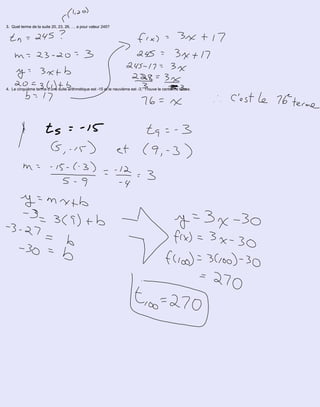 (1,20)
3. Quel terme de la suite 20, 23, 26, ... a pour valeur 245?
tn = 245 ?
m = 23-20 = 3
y = 3x+b
20 = 3(1)+b
b = 17
f(x) = 3x + 17
245 = 3x+17
245-17 = 3x
228 = 3x
3 3
76 = x
∴ c'est le 76e terme
4. Le cinquième terme d'une suite arithmétique est -15 et le neuvième est -3. Trouve le centième terme.
t5 = -15 t9 = -3
(5,-15) et (9,-3)
m = -15-(-3) / 5-9 = -12 / -4 = 3
y = mx+b
-3 = 3(9)+b
-3-27 = b
-30 = b
y = 3x-30
f(x) = 3x-30
f(100) = 3(100)-30
= 270
t100 = 270